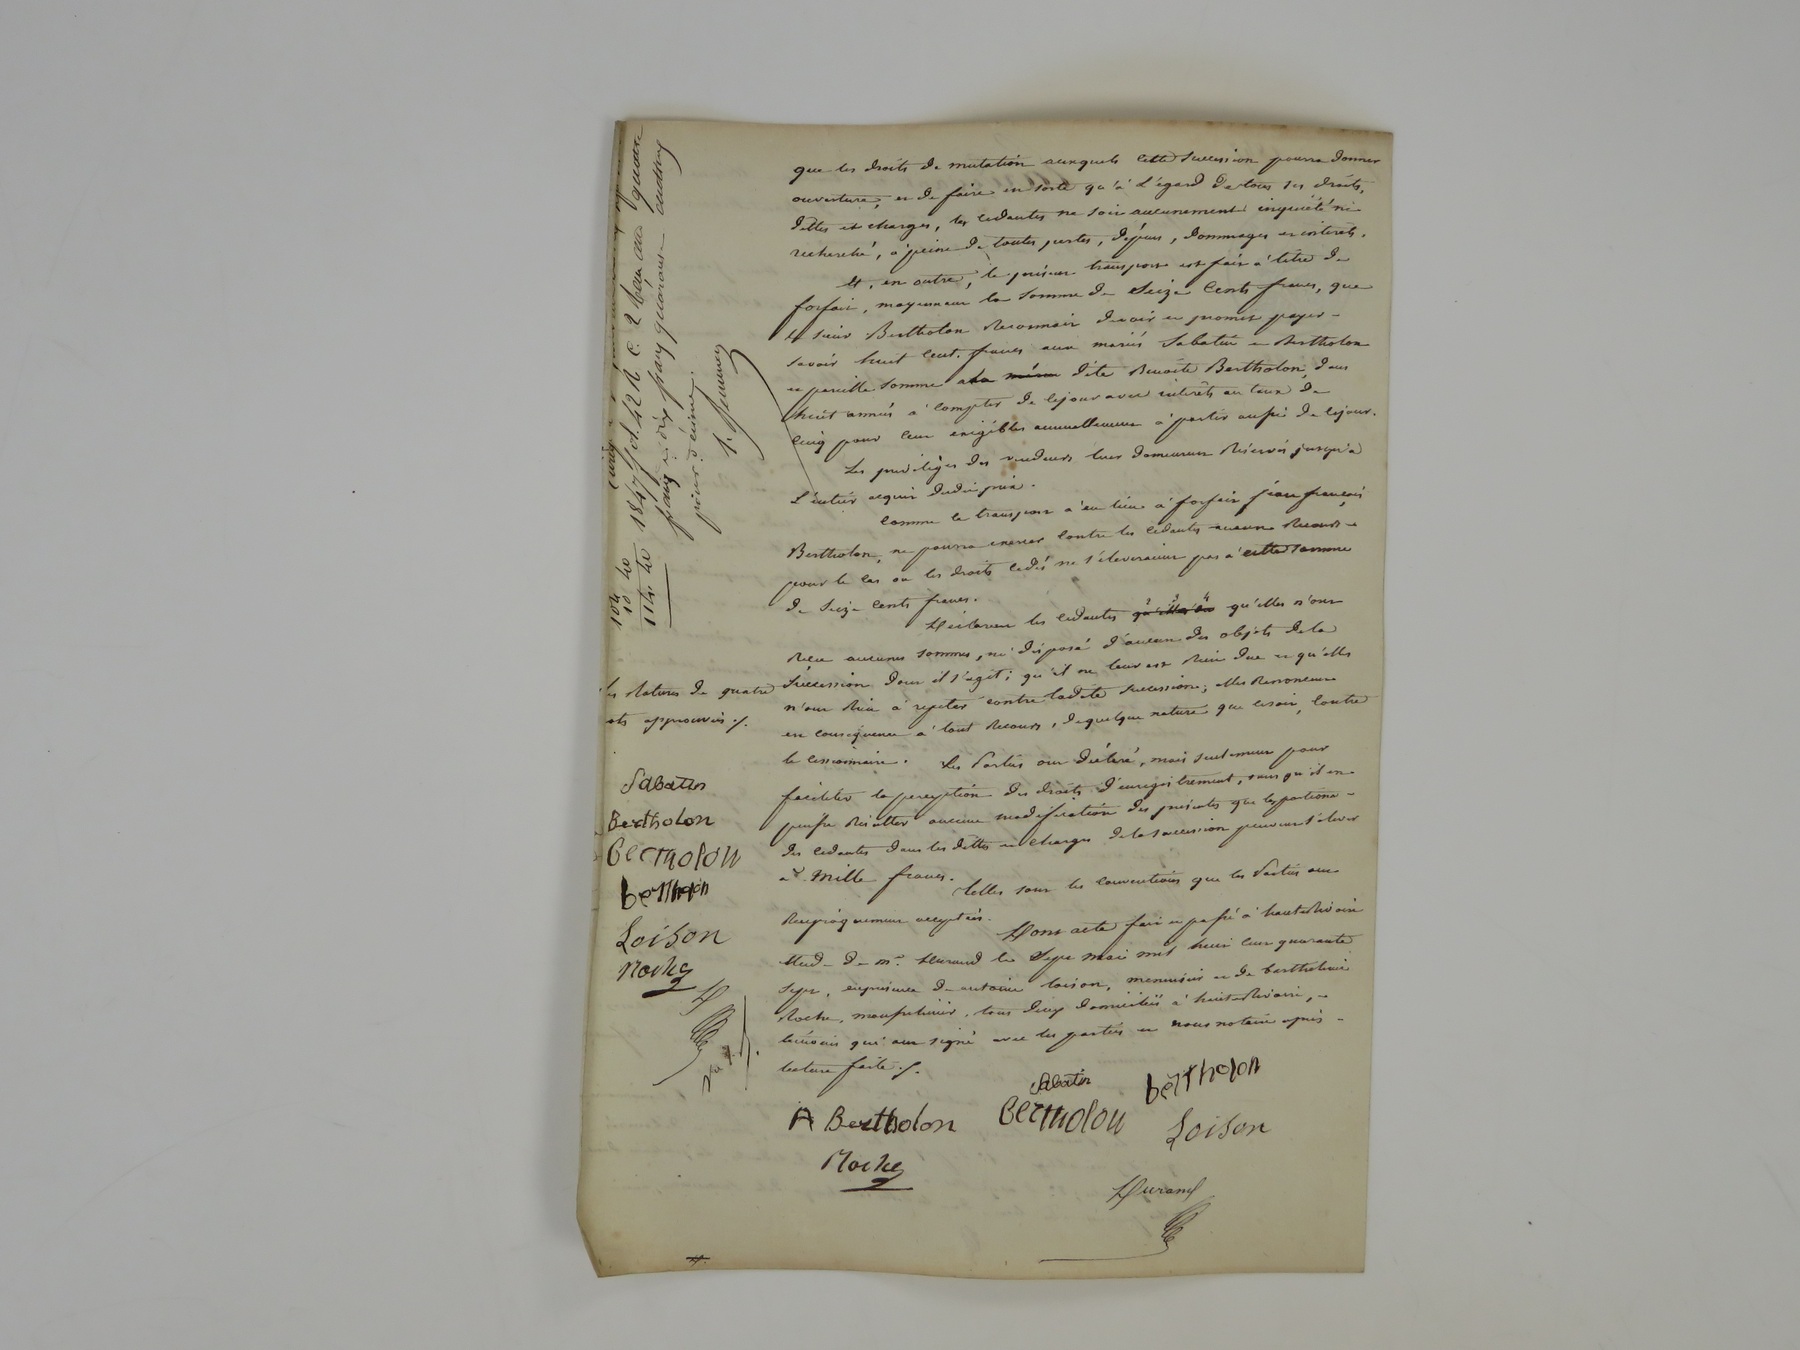 que les droits de mutation auxquels cette succession pourra donner
ouverture, et de faire en sorte qu'à l'égard de tous ses droits,
dettes et charges, les cédantes ne soit aucunement inquiété ni
recherché, à peine de toutes pertes, dépens, dommages et intérêts.
Et, en outre, le présent transport est fait à titre de
forfait, moyennant la somme de Seize Cents francs, que
le sieur Bertholon reconnait devoir et promet payer
savoir huit cent francs aux mariés Sabatin et Bertholon
et pareille somme à la même dite Benoite Bertholon, dans
huit années à compter de ce jour avec intérêts au taux de
cinq pour cent exigibles annuellement à partir aussi de ce jour.
Les privilèges des vendeurs leur demeurent réservés jusqu'à
l'entier acquit dudit prix.
Comme le transport a eu lieu à forfait jean françois
Bertholon, ne pourra exercer contre les cédantes aucun recours
pour le cas ou les droits cédés ne s'éleveraient pas à cette somme
de Seize Cents francs.
Déclarent les cédantes qu'elles n'ont
reçu aucunes sommes, ni disposé d'aucun des objets de la
succession dont il s'agit; qu'il ne leur est rien due et qu'elles
n'ont rien à repeter contre ladite succession; elles renoncent
en conséquence à tout recours, de quelque nature que ce soit, contre
le cessionnaire. Les Parties ont déclaré, mais seulement pour
faciliter la perception des droits d'enregistrement, sans qu'il en
puisse résulter aucune modification des présentes que la portion
des cédantes dans les dettes et charges de la succession peuvent s'élever
à Mille francs.
Telles sont les conventions que les Parties ont
réciproquement acceptées.
Dont acte fait et passé à haute Rivoire
Etude de Me. Durand le Sept mai mil huit cent quarante
sept, en présence de antoine loison, menuisier et de barthelemi
Roche, tous deux domiciliés à haute Rivoire,
témoins qui ont signé avec les parties et nous notaire après
lecture faite ./.
Sabatin
bertholon
A Bertholon
bertholon
Loison
Roche
Durand
les ratures de quatre
mots approuvés ./.
Sabatin
Bertholon
bertholon
bertholon
Loison
Roche
D
1847 fol. 42 R. C. 2
quatre
francs et dix francs quarante centimes
pour décime.
104
10 40
114 40